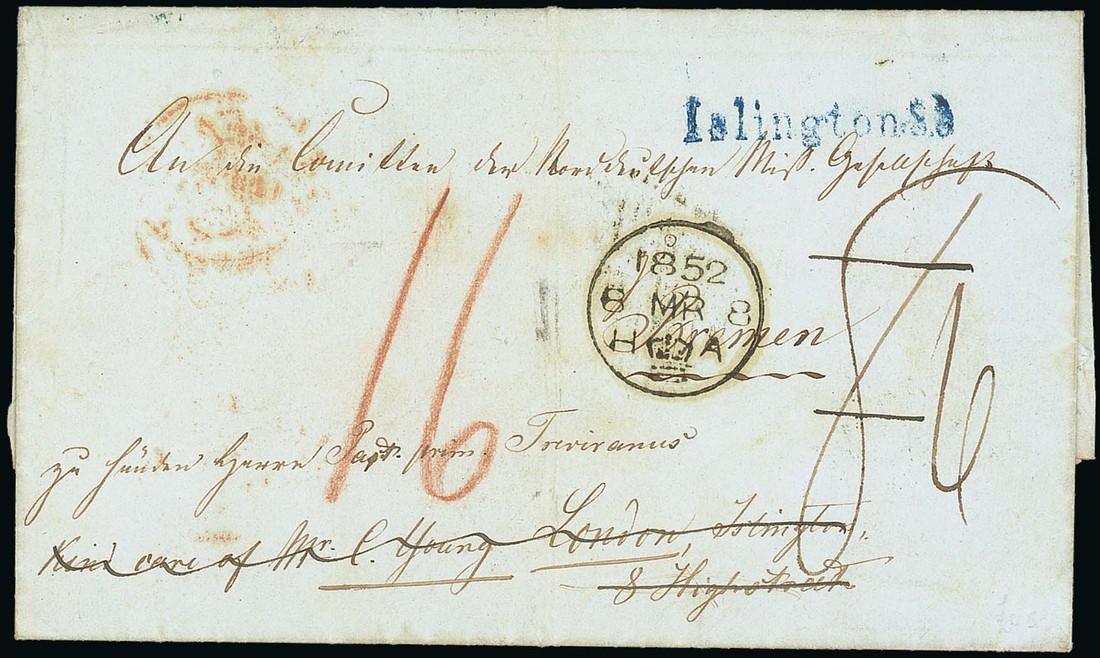 Islington S.O
An die Comitten der Norddeutschen Miss. Gesellschaft
16
1852
8 MR 8
Bremen
zu händen Herrn Past. prim. Treviranus
Kind care of Mr. C. Young London, Islington,
8 Highstreet